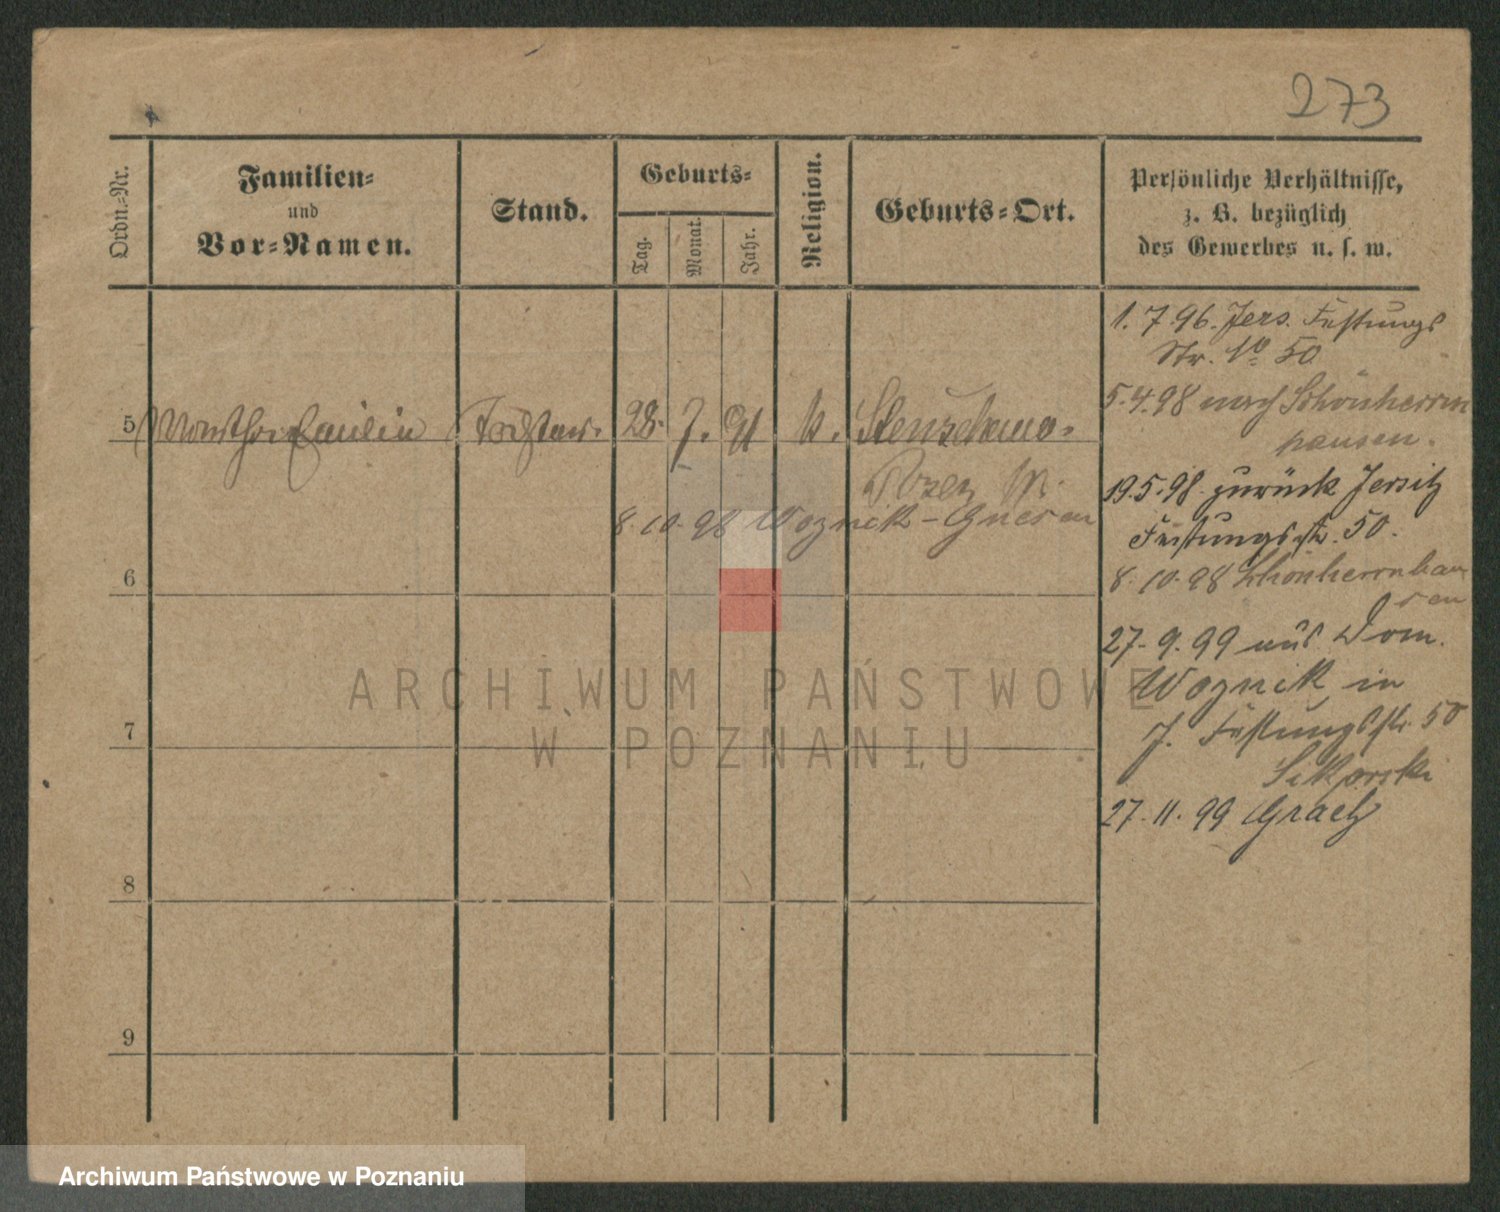 273
Ordn.-Nr.
Familien-
und
Vor-Namen.
Stand.
Geburts-
Tag.
Monat.
Jahr.
Religion.
Geburts-Ort.
Persönliche Verhältnisse,
z. B. bezüglich
des Gewerbes u. s. w.
1. 7. 96. Jers. Festungs
Str. No 50
5. 4. 98 nach Schönherrn
hausen.
5 28. 7. 91 k.
Posen W.
19. 5. 98. zurück Jersitz
Festungsstr. 50.
8. 10. 98 Woznik - Gnesen
8. 10. 98 Schönherrnhau
sen
6
27. 9. 99 aus Dom.
Woznik in
J. Festungsstr. 50
Sikorski
27. 11. 99 Graetz
7
8
9
ARCHIWUM PAŃSTWOWE
W POZNANIU
Archiwum Państwowe w Poznaniu